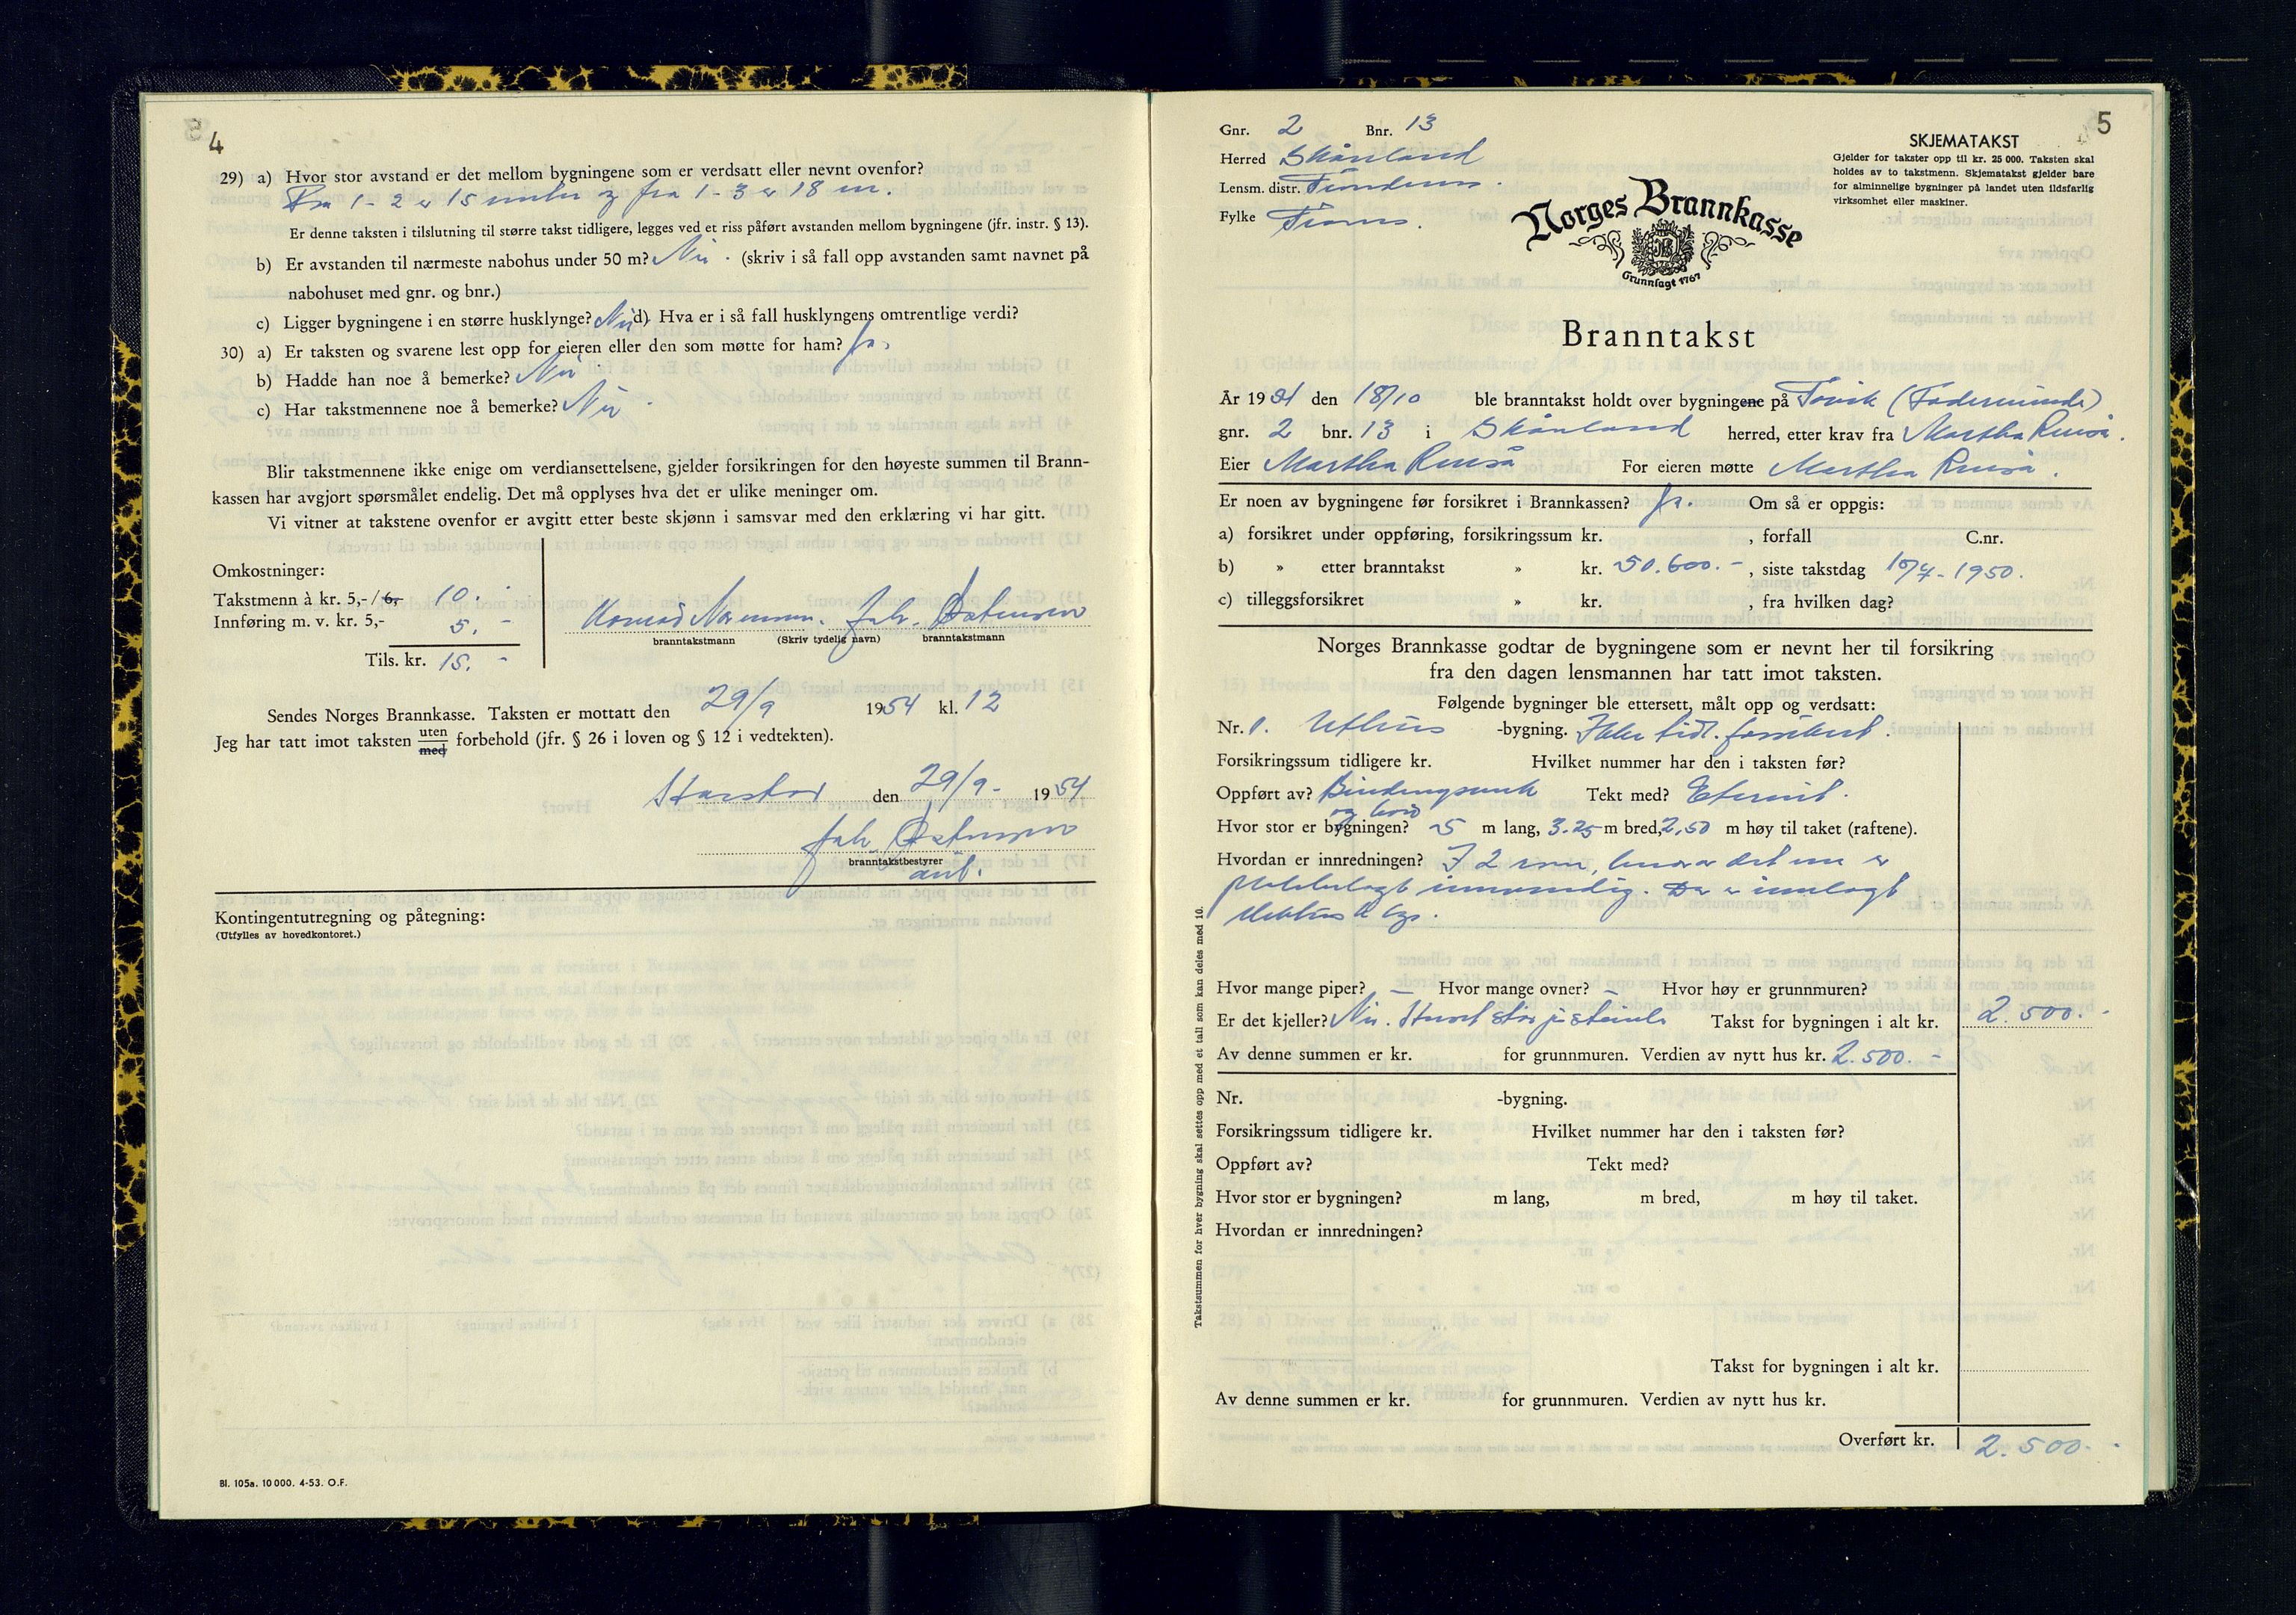 4
29) a) Hvor stor avstand er det mellom bygningene som er verdsatt eller nevnt ovenfor?
Fra 1 - 2 er 15 meter og fra 1 - 3 er 18 m.
Er denne taksten i tilslutning til større takst tidligere, legges ved et riss påført avstanden mellom bygningene (jfr. instr. § 13).
b) Er avstanden til nærmeste nabohus under 50 m? Nei. (skriv i så fall opp avstanden samt navnet på
nabohuset med gnr. og bnr.)
c) Ligger bygningene i en større husklynge? Nei d) Hva er i så fall husklyngens omtrentlige verdi?
30) a) Er taksten og svarene lest opp for eieren eller den som møtte for ham? Ja.
b) Hadde han noe å bemerke? Nei
c) Har takstmennene noe å bemerke? Nei.
Blir takstmennene ikke enige om verdiansettelsene, gjelder forsikringen for den høyeste summen til Brann-
kassen har avgjort spørsmålet endelig. Det må opplyses hva det er ulike meninger om.
Vi vitner at takstene ovenfor er avgitt etter beste skjønn i samsvar med den erklæring vi har gitt.
Omkostninger:
Takstmenn à kr. 5,- /6,- 10.-
Innføring m. v. kr. 5,- 5.-
Tils. kr. 15.-
Konrad Joh.
branntakstmann (Skriv tydelig navn) branntakstmann
Sendes Norges Brannkasse. Taksten er mottatt den 29/9 1954 kl. 12
Jeg har tatt imot taksten uten/med forbehold (jfr. § 26 i loven og § 12 i vedtekten).
den 29/9- 1954
Joh.
branntakstbestyrer
Kontingentutregning og påtegning:
(Utfylles av hovedkontoret.)
Bl. 105a. 10 000. 4-53. O.F.
5
Gnr. 2 Bnr. 13
Herred Skånland
Lensm. distr. Trondenes.
Fylke Troms.
SKJEMATAKST
Gjelder for takster opp til kr. 25 000. Taksten skal
holdes av to takstmenn. Skjematakst gjelder bare
for alminnelige bygninger på landet uten ildsfarlig
virksomhet eller maskiner.
Norges Brannkasse
Grunnlagt 1767
Branntakst
År 1954 den 18/10 ble branntakst holdt over bygningene på Tovik
gnr. 2 bnr. 13 i Skånland herred, etter krav fra Martha Renså.
Eier Martha Renså For eieren møtte Martha Renså.
Er noen av bygningene før forsikret i Brannkassen? Ja. Om så er oppgis:
a) forsikret under oppføring, forsikringssum kr. , forfall C.nr.
b) » etter branntakst » kr. 50.600.- , siste takstdag 10/7-1950.
c) tilleggsforsikret » kr. , fra hvilken dag?
Norges Brannkasse godtar de bygningene som er nevnt her til forsikring
fra den dagen lensmannen har tatt imot taksten.
Følgende bygninger ble ettersett, målt opp og verdsatt:
Nr. 1. Uthus -bygning. Ikke tidl. forsikret.
Forsikringssum tidligere kr. Hvilket nummer har den i taksten før?
Oppført av? Bindingsverk Tekt med? Eternit.
og bord
Hvor stor er bygningen? 5 m lang, 3.25 m bred, 2,50 m høy til taket (raftene).
Hvordan er innredningen? I 2 rom, hvorav det ene er
platebelagt innvendig. Der er innlagt
elektrisk lys.
Hvor mange piper? — Hvor mange ovner? — Hvor høy er grunnmuren?
Er det kjeller? Nei. Huset står på Takst for bygningen i alt kr. 2.500.-
Av denne summen er kr. for grunnmuren. Verdien av nytt hus kr. 2.500.-
Nr. -bygning.
Forsikringssum tidligere kr. Hvilket nummer har den i taksten før?
Oppført av? Tekt med?
Hvor stor er bygningen? m lang, m bred, m høy til taket.
Hvordan er innredningen?
Takst for bygningen i alt kr.
Av denne summen er kr. for grunnmuren. Verdien av nytt hus kr.
Overført kr. 2.500.-
Takstsummen for hver bygning skal settes opp med et tall som kan deles med 10.